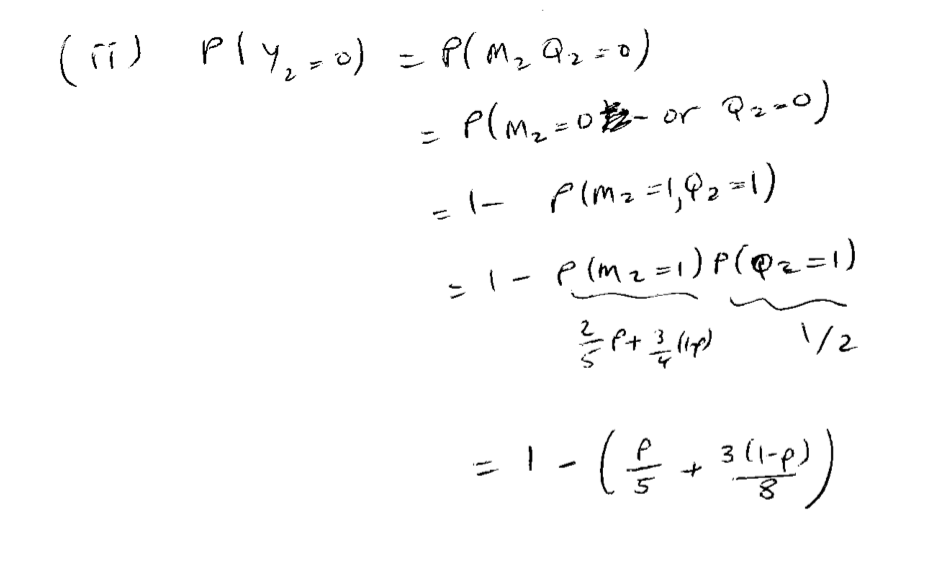 (ii) P(Y₂=0) = P(M₂ Q₂=0)
= P(M₂=0 or Q₂=0)
= 1- P(M₂=1,Q₂=1)
= 1 - P(M₂=1) P(Q₂=1)
2/5 p + 3/4 (1-p) 1/2
= 1 - (p/5 + 3(1-p)/8)